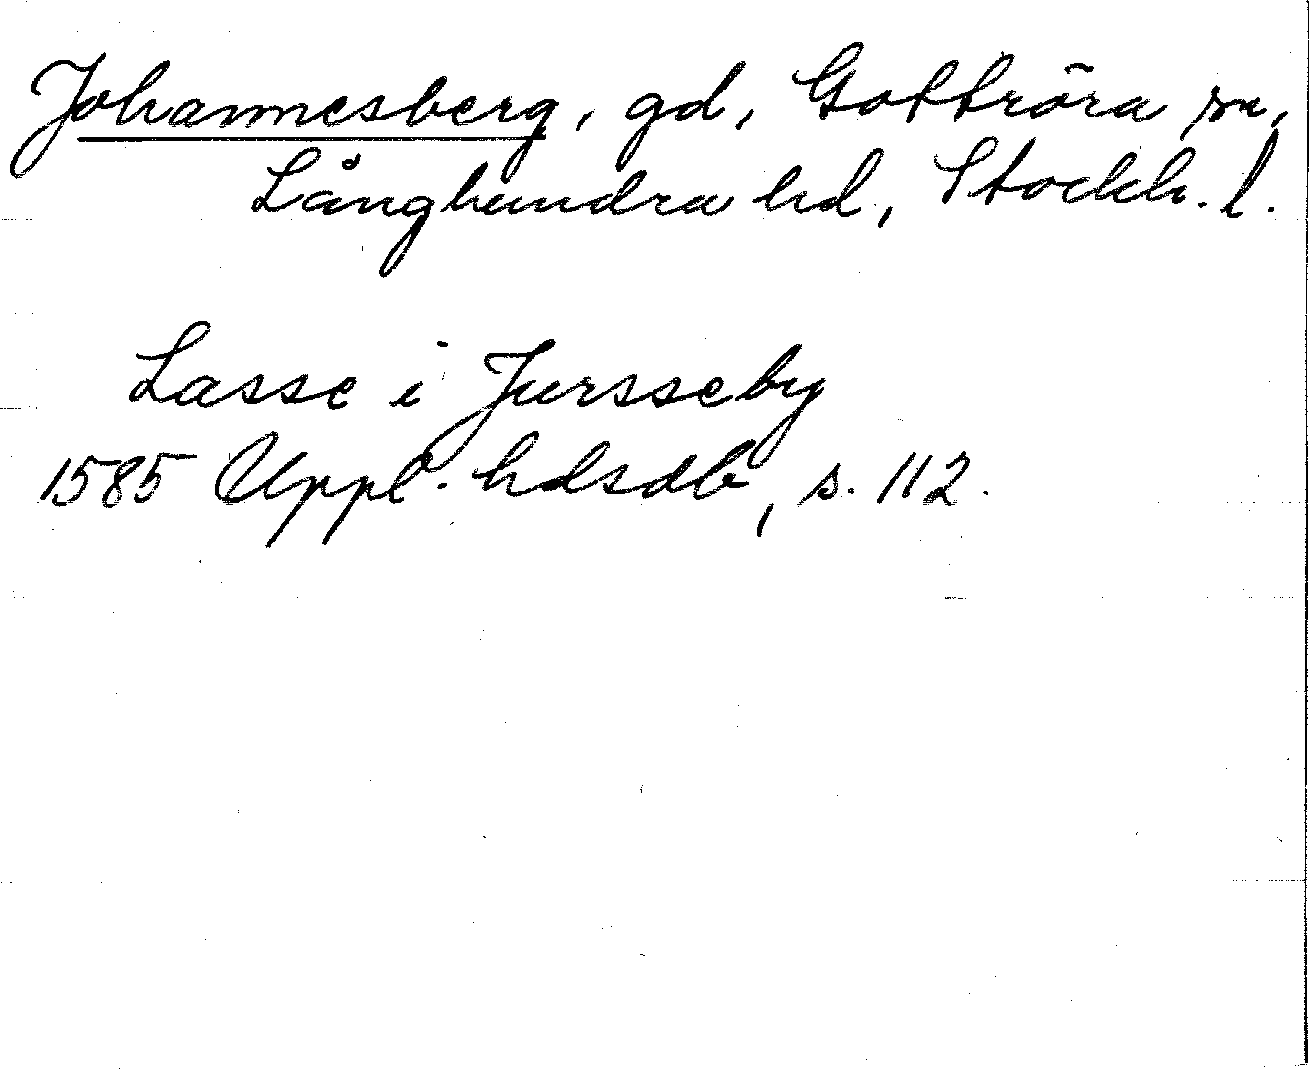 Johannesberg, gd, Gottröra sn,
Långhundra hd, Stockh. l.
Lasse i Jursseby
1585 Uppl. hdsdb, s. 112.